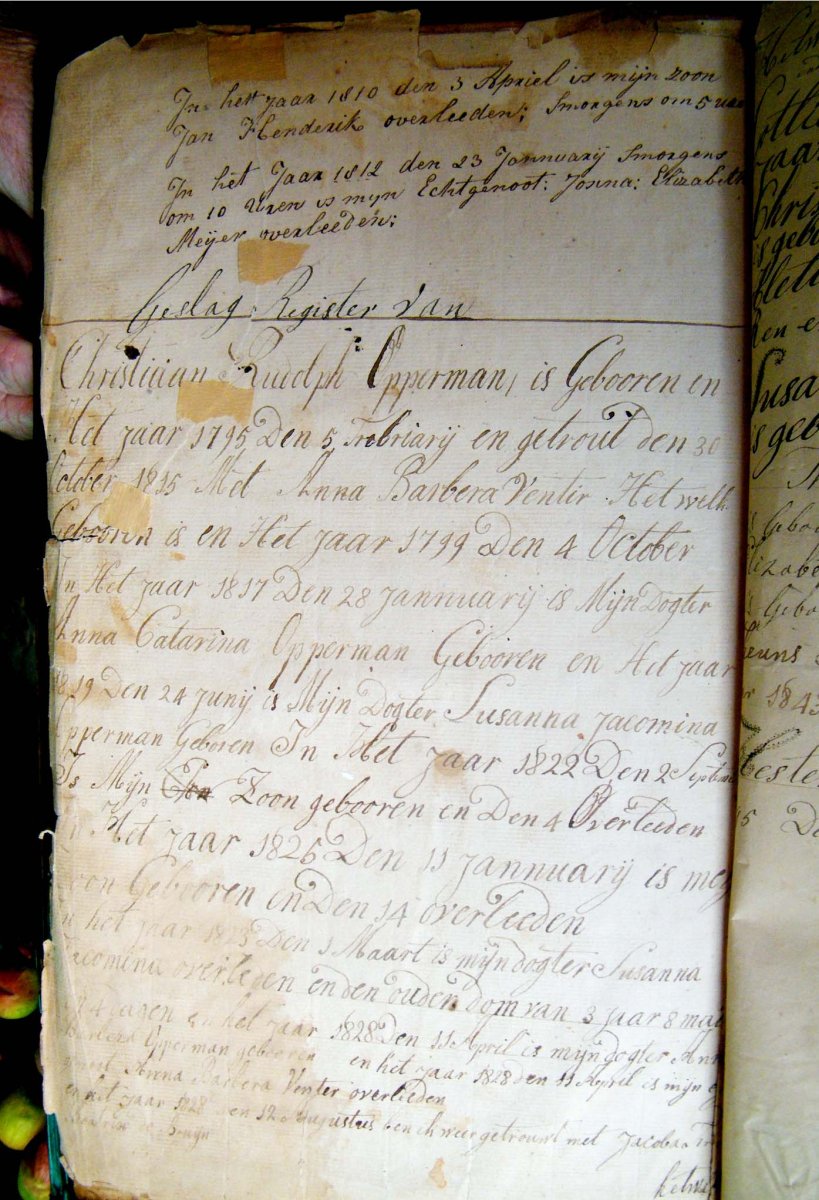 In het jaar 1810 den 3 Apriel is mijn zoon
Jan Henderik overleeden; Smorgens om 5 uur
In het Jaar 1812 den 23 Jannuarij Smorgens
om 10 Uren is mijn Echtgenoot: Josina: Elizabeth
Meijer overleeden;
Geslag Register van
Christiaan Rudolph Opperman, is Gebooren en
Het jaar 1795 Den 5 Febriarij en getrout den 30
October 1815 Met Anna Barbera Venter Het welk
Gebooren is en Het jaar 1799 Den 4 October
In Het jaar 1817 Den 28 Jannuarij is Mijn Dogter
Anna Catarina Opperman Gebooren en Het jaar
1819 Den 24 Junij is Mijn Dogter Susanna Jacomina
Opperman Geboren In Het jaar 1822 Den 2 Septem
Is Mijn Zoon gebooren en Den 4 Overleeden
In Het jaar 1825 Den 11 Jannuarij is mey
zoon Gebooren en Den 14 overleeden
In het jaar 1823 Den 1 Maart is mijn dogter Susanna
Jacomina overleden en den ouden dom van 3 jaar 8 ma
4 dagen en het jaar 1828 Den 11 April is mijn dogter Ann
Barbera Opperman gebooren en het jaar 1828 den 11 April is mijn
Anna Barbera Venter overlieden
en het jaar 1828 den 12 Augustus ben ik weer getrouwt met Jacoba
de Bruijn
hetwel
Susa
is geb
Gebo
1843